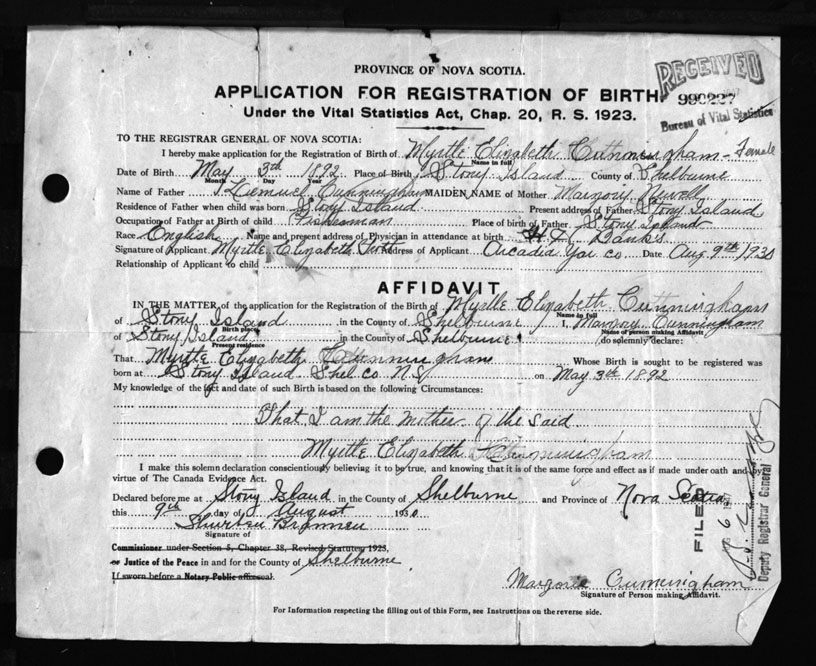 PROVINCE OF NOVA SCOTIA.
RECEIVED
APPLICATION FOR REGISTRATION OF BIRTH
990227
Under the Vital Statistics Act, Chap. 20, R. S. 1923.
Bureau of Vital Statistics
TO THE REGISTRAR GENERAL OF NOVA SCOTIA:
I hereby make application for the Registration of Birth of Myrtle Elizabeth Cunningham - Female
Name in full
Date of Birth May 3th 1892 Place of Birth Stony Island County of Shelbourne
Month Day Year
Name of Father Lemuel Cunningham MAIDEN NAME of Mother Marjory Newell
Residence of Father when child was born Stony Island Present address of Father Stony Island
Occupation of Father at Birth of child Fisherman Place of birth of Father Stony Island
Race English Name and present address of Physician in attendance at birth Banks
Signature of Applicant Myrtle Elizabeth Address of Applicant Arcadia Yar co Date Aug 9th 1930
Relationship of Applicant to child
AFFIDAVIT
IN THE MATTER, of the application for the Registration of the Birth of Myrtle Elizabeth Cunningham
Name in full
of Stony Island in the County of Shelbourne I, Marjory Cunningham
Birth place
Name of person making Affidavit
of Stony Island in the County of Shelbourne do solemnly declare:
Present residence
That Myrtle Elizabeth Cunningham Whose Birth is sought to be registered was
born at Stony Island Shel co N.S. on May 3th 1892
My knowledge of the fact and date of such Birth is based on the following Circumstances:
That I am the Mother of the said
Myrtle Elizabeth Cunningham
I make this solemn declaration conscientiously believing it to be true, and knowing that it is of the same force and effect as if made under oath and by
virtue of The Canada Evidence Act.
Declared before me at Stony Island in the County of Shelburne and Province of Nova Scotia
this 9th day of August 1930
Signature of
Commissioner under Section 5, Chapter 38, Revised Statutes 1923,
or Justice of the Peace in and for the County of Shelburne
If sworn before a Notary Public affix seal.
FILED
Deputy Registrar General
Marjorie Cunningham
Signature of Person making Affidavit.
For Information respecting the filling out of this Form, see Instructions on the reverse side.